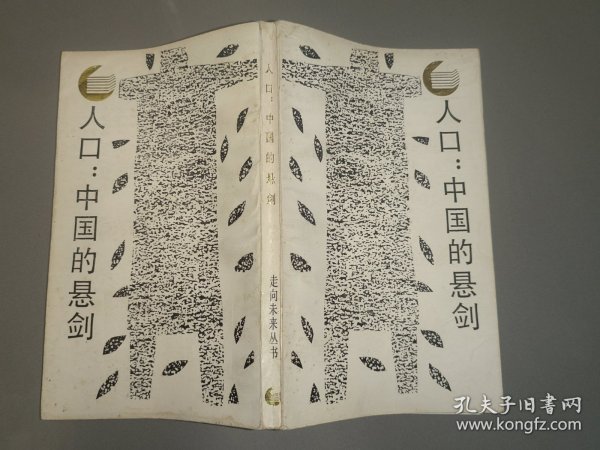 人口：中国的悬剑
人口：中国的悬剑
走向未来丛书
人口：中国的悬剑
孔夫子旧书网
www.kongfz.com